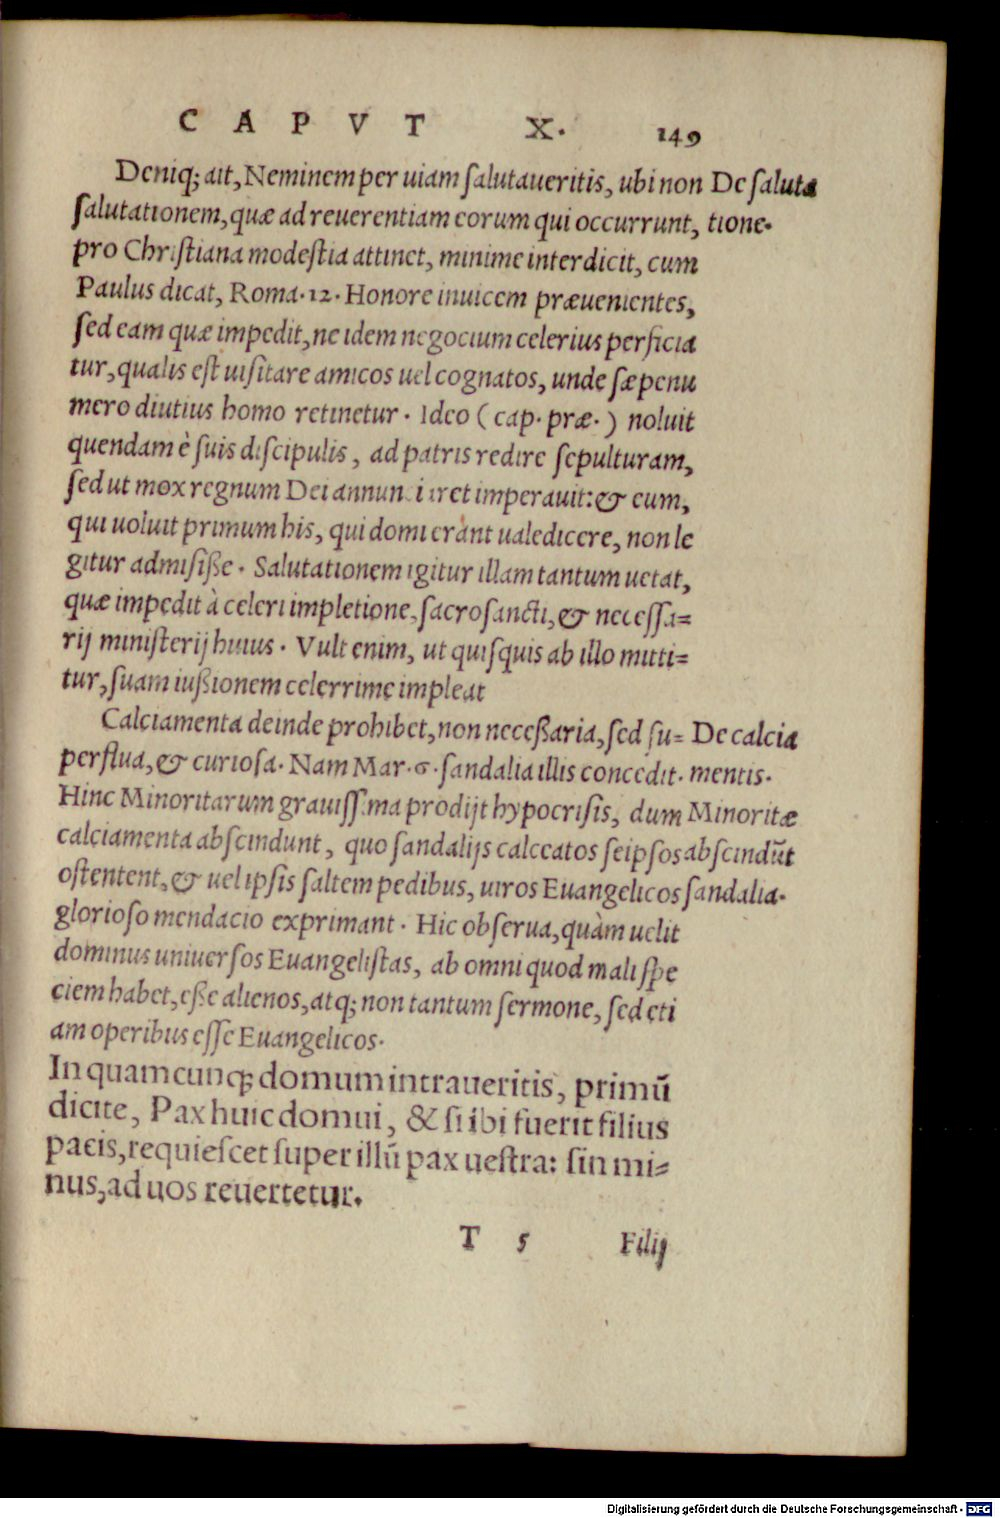 CAPVT X. 149
Deniq; ait, Neminem per uiam ſalutaueritis, ubi non
ſalutationem, quæ ad reuerentiam eorum qui occurrunt,
pro Chriſtiana modeſtia attinet, minime interdicit, cum
Paulus dicat, Roma. 12. Honore inuicem præuenientes,
ſed eam quæ impedit, ne idem negocium celerius perficia
tur, qualis eſt uiſitare amicos uel cognatos, unde ſæpenu
mero diutius homo retinetur. Ideo (cap. præ.) noluit
quendam è ſuis diſcipulis, ad patris redire ſepulturam,
ſed ut mox regnum Dei annunciaret imperauit: & eum,
qui uoluit primum his, qui domi erant ualedicere, non le
gitur admiſiſſe. Salutationem igitur illam tantum uetat,
quæ impedit à celeri impletione, ſacroſancti, & neceſſa=
rij miniſterij huius. Vult enim, ut quiſquis ab illo mitti=
tur, ſuam iußionem celerrime impleat
De ſaluta
tione.
Calciamenta deinde prohibet, non neceßaria, ſed ſu=
perflua, & curioſa. Nam Mar. 6. ſandalia illis concedit.
Hinc Minoritarum grauiſſima prodijt hypocriſis, dum
calciamenta abſcindunt, quo ſandalijs calceatos ſeipſos
oſtentent, & uel ipſis ſaltem pedibus, uiros Euangelicos
glorioſo mendacio exprimant. Hic obſerua, quàm uelit
dominus uniuerſos Euangeliſtas, ab omni quod mali ſpe
ciem habet, eße alienos, atq; non tantum ſermone, ſed eti
am operibus eſſe Euangelicos.
De calcia
mentis.
Minoritæ
abſcindũt
ſandalia.
In quamcunq; domum intraueritis, primũ
dicite, Pax huic domui, & ſi ibi fuerit filius
pacis, requieſcet ſuper illũ pax ueſtra: ſin mi=
nus, ad uos reuertetur.
T 5 Filij
Digitalisierung gefördert durch die Deutsche Forschungsgemeinschaft - DFG